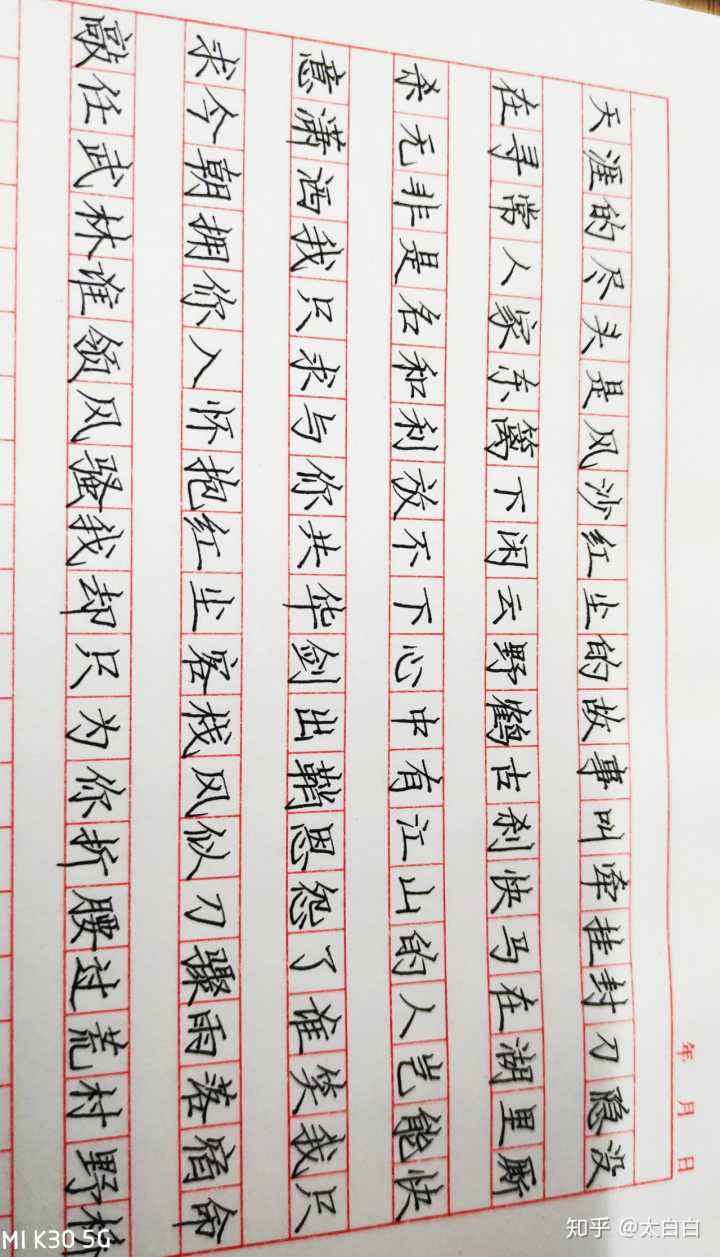 年 月 日
天涯的尽头是风沙红尘的故事叫牵挂封刀隐没
在寻常人家东篱下闲云野鹤古刹快马在湖里厮
杀无非是名和利放不下心中有江山的人岂能快
意潇洒我只求与你共华剑出鞘恩怨了谁笑我只
求今朝拥你入怀抱红尘客栈风似刀骤雨落宿命
敲任武林谁领风骚我却只为你折腰过荒村野桥
MI K30 5G
知乎 @太白白